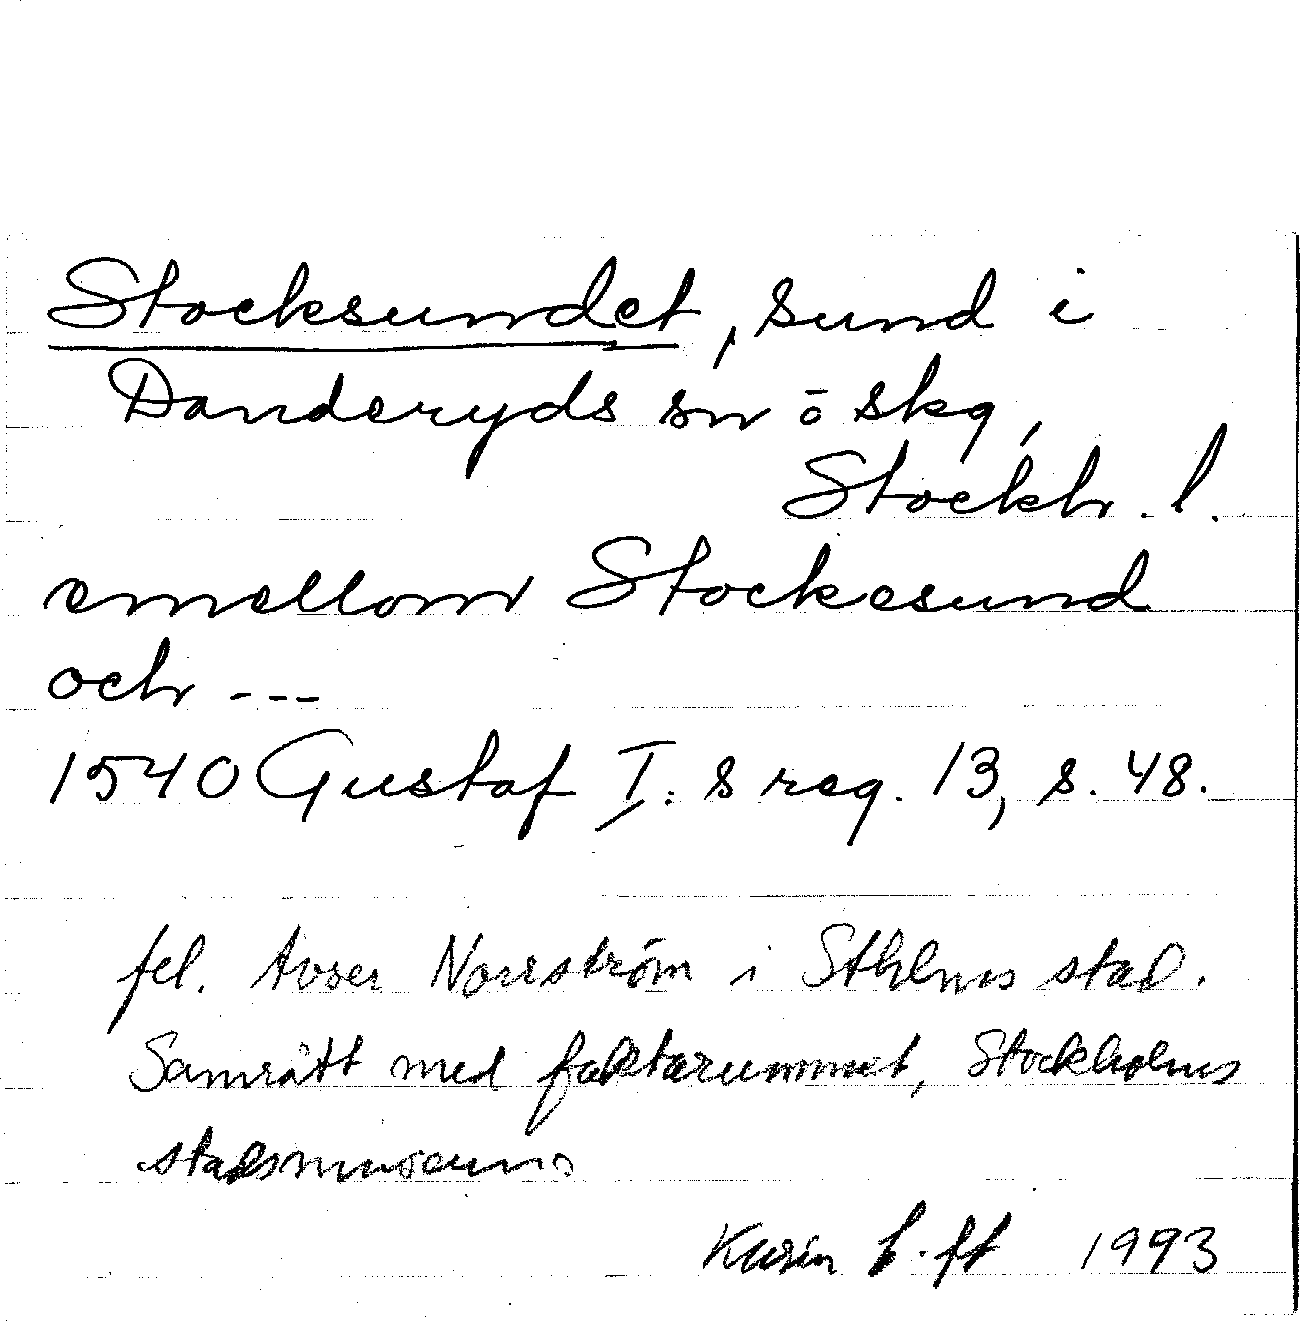 Stocksundet, sund i
Danderyds sn ö skg,
Stockh. l.
emellom Stockesund
och ---
1540 Gustaf I:s reg. 13, s. 48.
fel. Avser Norrström i Sthlms stad.
Samrått med faktarummet, Stockholms
stadsmuseum
Karin 1993